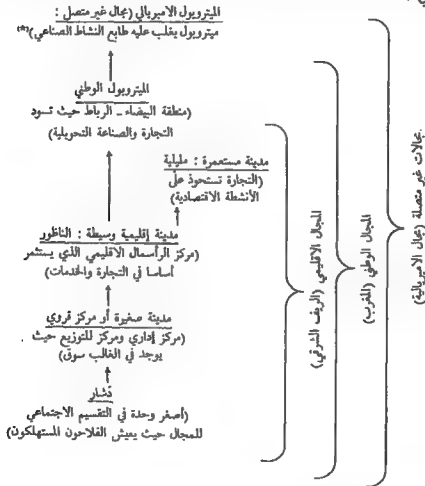 الميتروبول الامبريالي (مجال غير متصل :
ميتروبول يغلب عليه طابع النشاط الصناعي)(*)
الميتروبول الوطني
(منطقة البيضاء ـ الرباط حيث تسود
التجارة والصناعة التحويلية)
مدينة مستعمرة : مليلية
(التجارة تستحوذ على
الأنشطة الاقتصادية)
مدينة إقليمية وسيطة : الناظور
(مركز الرأسمال الاقليمي الذي يستثمر
أساسا في التجارة والخدمات)
مدينة صغيرة أو مركز قروي
(مركز إداري ومركز للتوزيع حيث
يوجد في الغالب سوق)
دشار
(أصغر وحدة في التقسيم الاجتماعي
للمجال حيث يعيش الفلاحون المستهلكون)
المجال الاقليمي (الريف الشرقي)
المجال الوطني (المغرب)
مجالات غير متصلة (مجال الامبريالية)